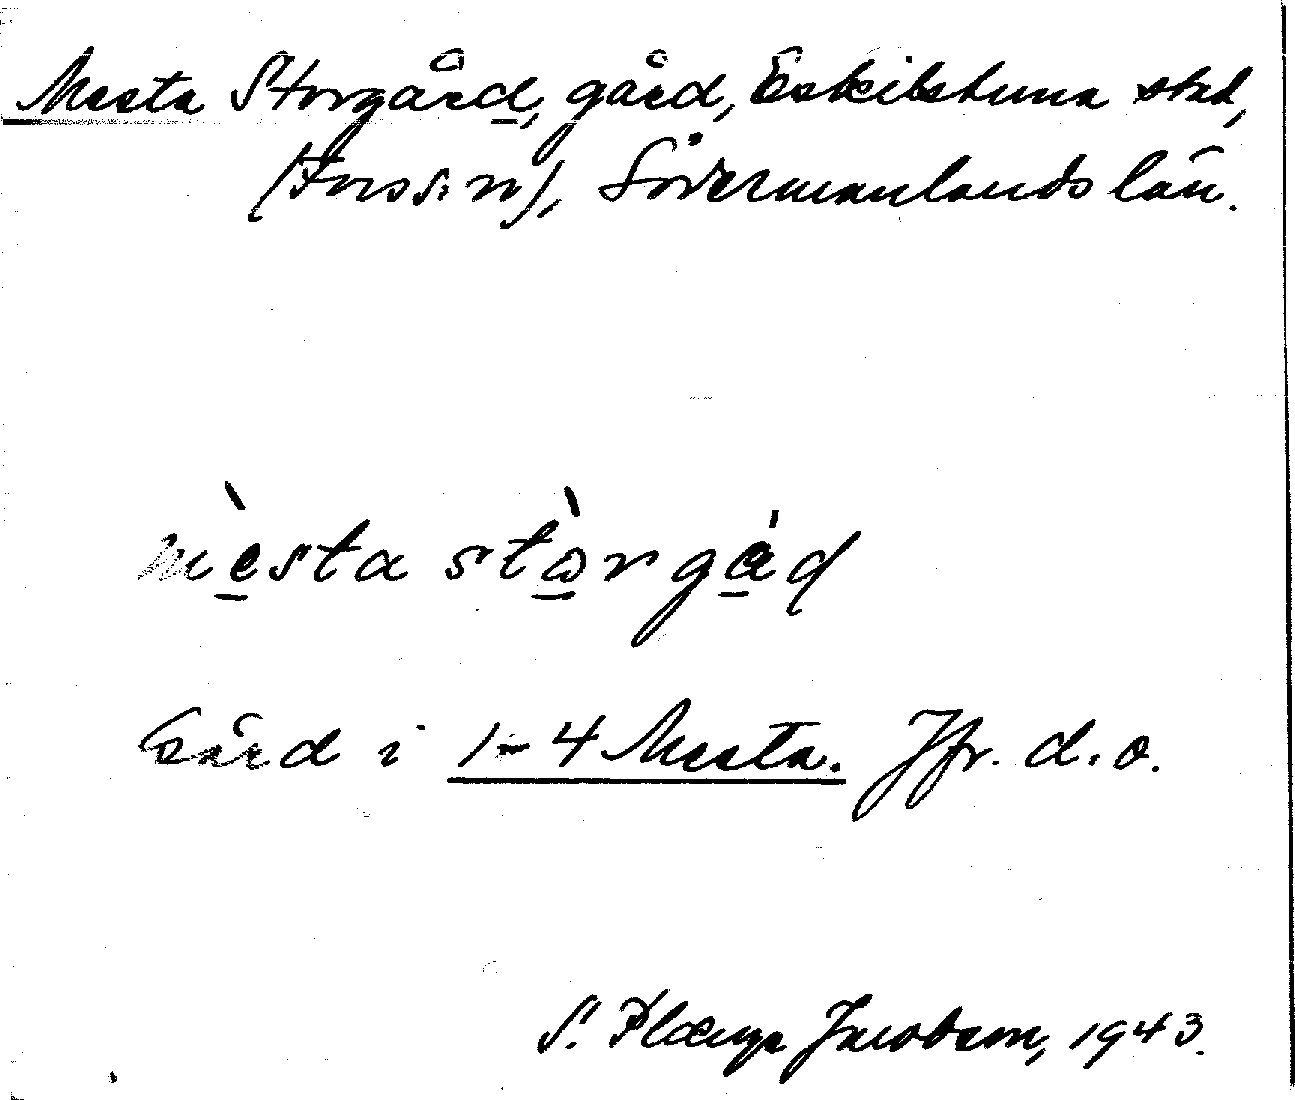 Mesta Storgård, gård, Eskilstuna stad,
(Fors sn), Södermanlands län.
mèsta stòrgåd
Gård i 1-4 Mesta. Jfr. d.o.
S. Plænge Jacobson, 1943.